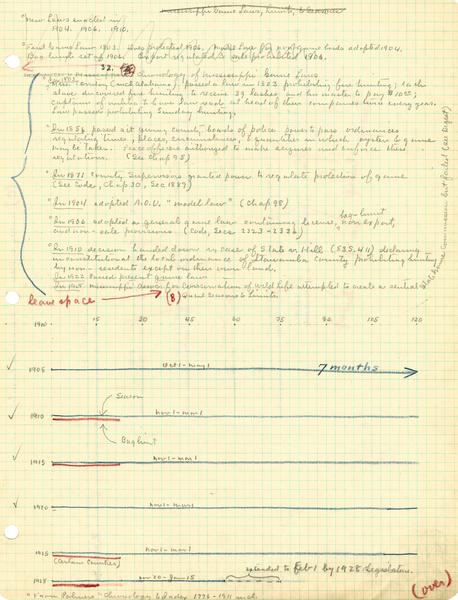 Mississippi Game Laws, Limits, & Seasons
"New Laws enacted in
1904. 1906. 1910.
Game Laws 1903. Does protected 1906. Model Law for non-game birds adopted 1904.
Bag limit set up 1906. Export regulated & sale prohibited 1906.
32.
Chronology of Mississippi Game Laws
passed a law in 1803 prohibiting fire hunting; each
slave discovered fire hunting to receive 39 lashes and his master to pay $10.75;
captains of militia to have law read at head of their companies twice every year.
Law passed prohibiting Sunday hunting.
"In 1856 passed act giving county boards of police power to pass ordinances
regulating times, places, circumstances, & quantities in which oysters & game
may be taken. Peace officers authorized to make seizures and enforce these
regulations. (See Chap 95)
"In 1871 County Supervisors granted power to regulate protection of game
(See Code, Chap 30, Sec 1887)
"In 1904 adopted A.O.U. "model law" (Chap 98)
bag-limit
"In 1906 adopted a general game law containing license, non export,
and non-sale provisions. (Code, Secs 2323-2336)
"In 1910 decision handed down in case of State vs Hall (535, 411) declaring
unconstitutional the local ordinance of Itawamba County prohibiting hunting
by non-residents except on their own land.
In 1922 Passed present game law.
In 1925 Mississippi Assn for Conservation of wild life attempted to create a central
State Game Commission but failed (see Digest)
Leave space
(B) Quail Seasons & Limits.
1900 15 30 45 60 75 90 105 120
Oct 1 - May 1
7 months
1905
Season
1910 Nov 1 - Mar 1
Bag limit
1915 Nov 1 - Mar 1
1920 Nov 1 - Mar 1
1925 Nov 1 - Mar 1
(Certain Counties)
extended to Feb 1 by 1928 Legislature.
1928 Nov 20 - Jan 15
"From Palmer's "Chronology & Index 1776-1911 incl.
(over)